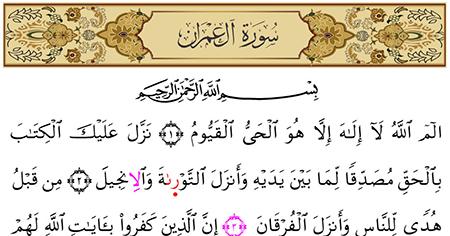 سُورَةُ آلِ عِمْرَانَ
بِسْمِ ٱللَّهِ ٱلرَّحْمَٰنِ ٱلرَّحِيمِ
الٓمٓ ٱللَّهُ لَآ إِلَٰهَ إِلَّا هُوَ ٱلْحَىُّ ٱلْقَيُّومُ ﴿١﴾ نَزَّلَ عَلَيْكَ ٱلْكِتَٰبَ
بِٱلْحَقِّ مُصَدِّقًا لِّمَا بَيْنَ يَدَيْهِ وَأَنزَلَ ٱلتَّوْرَىٰةَ وَٱلْإِنجِيلَ ﴿٢﴾ مِن قَبْلُ
هُدًى لِّلنَّاسِ وَأَنزَلَ ٱلْفُرْقَانَ ﴿٣﴾ إِنَّ ٱلَّذِينَ كَفَرُوا۟ بِـَٔايَٰتِ ٱللَّهِ لَهُمْ